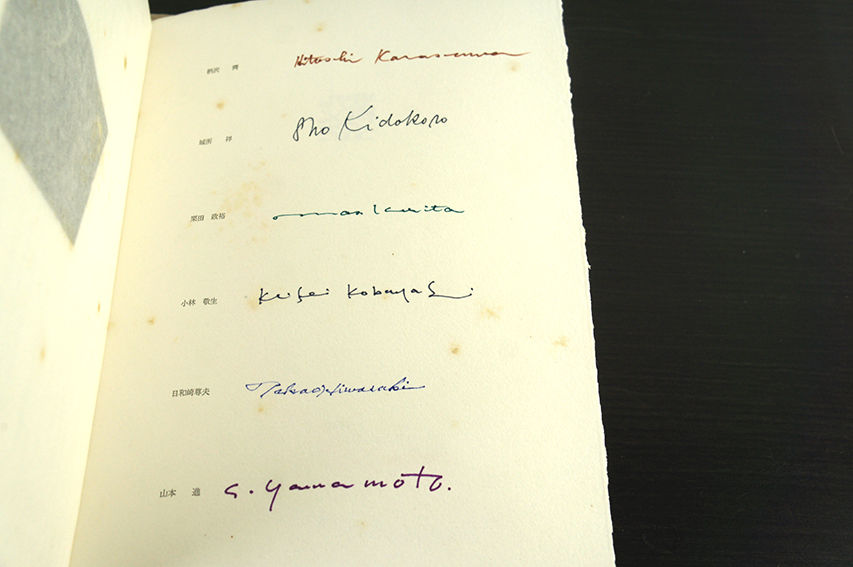 柄沢　齊 Hitoshi Karasawa
城所　祥 Sho Kidokoro
栗田　政裕 Masa Kurita
小林　敬生 Keisei Kobayashi
日和崎尊夫 Takao Hiwasaki
山本　進 S. Yamamoto.